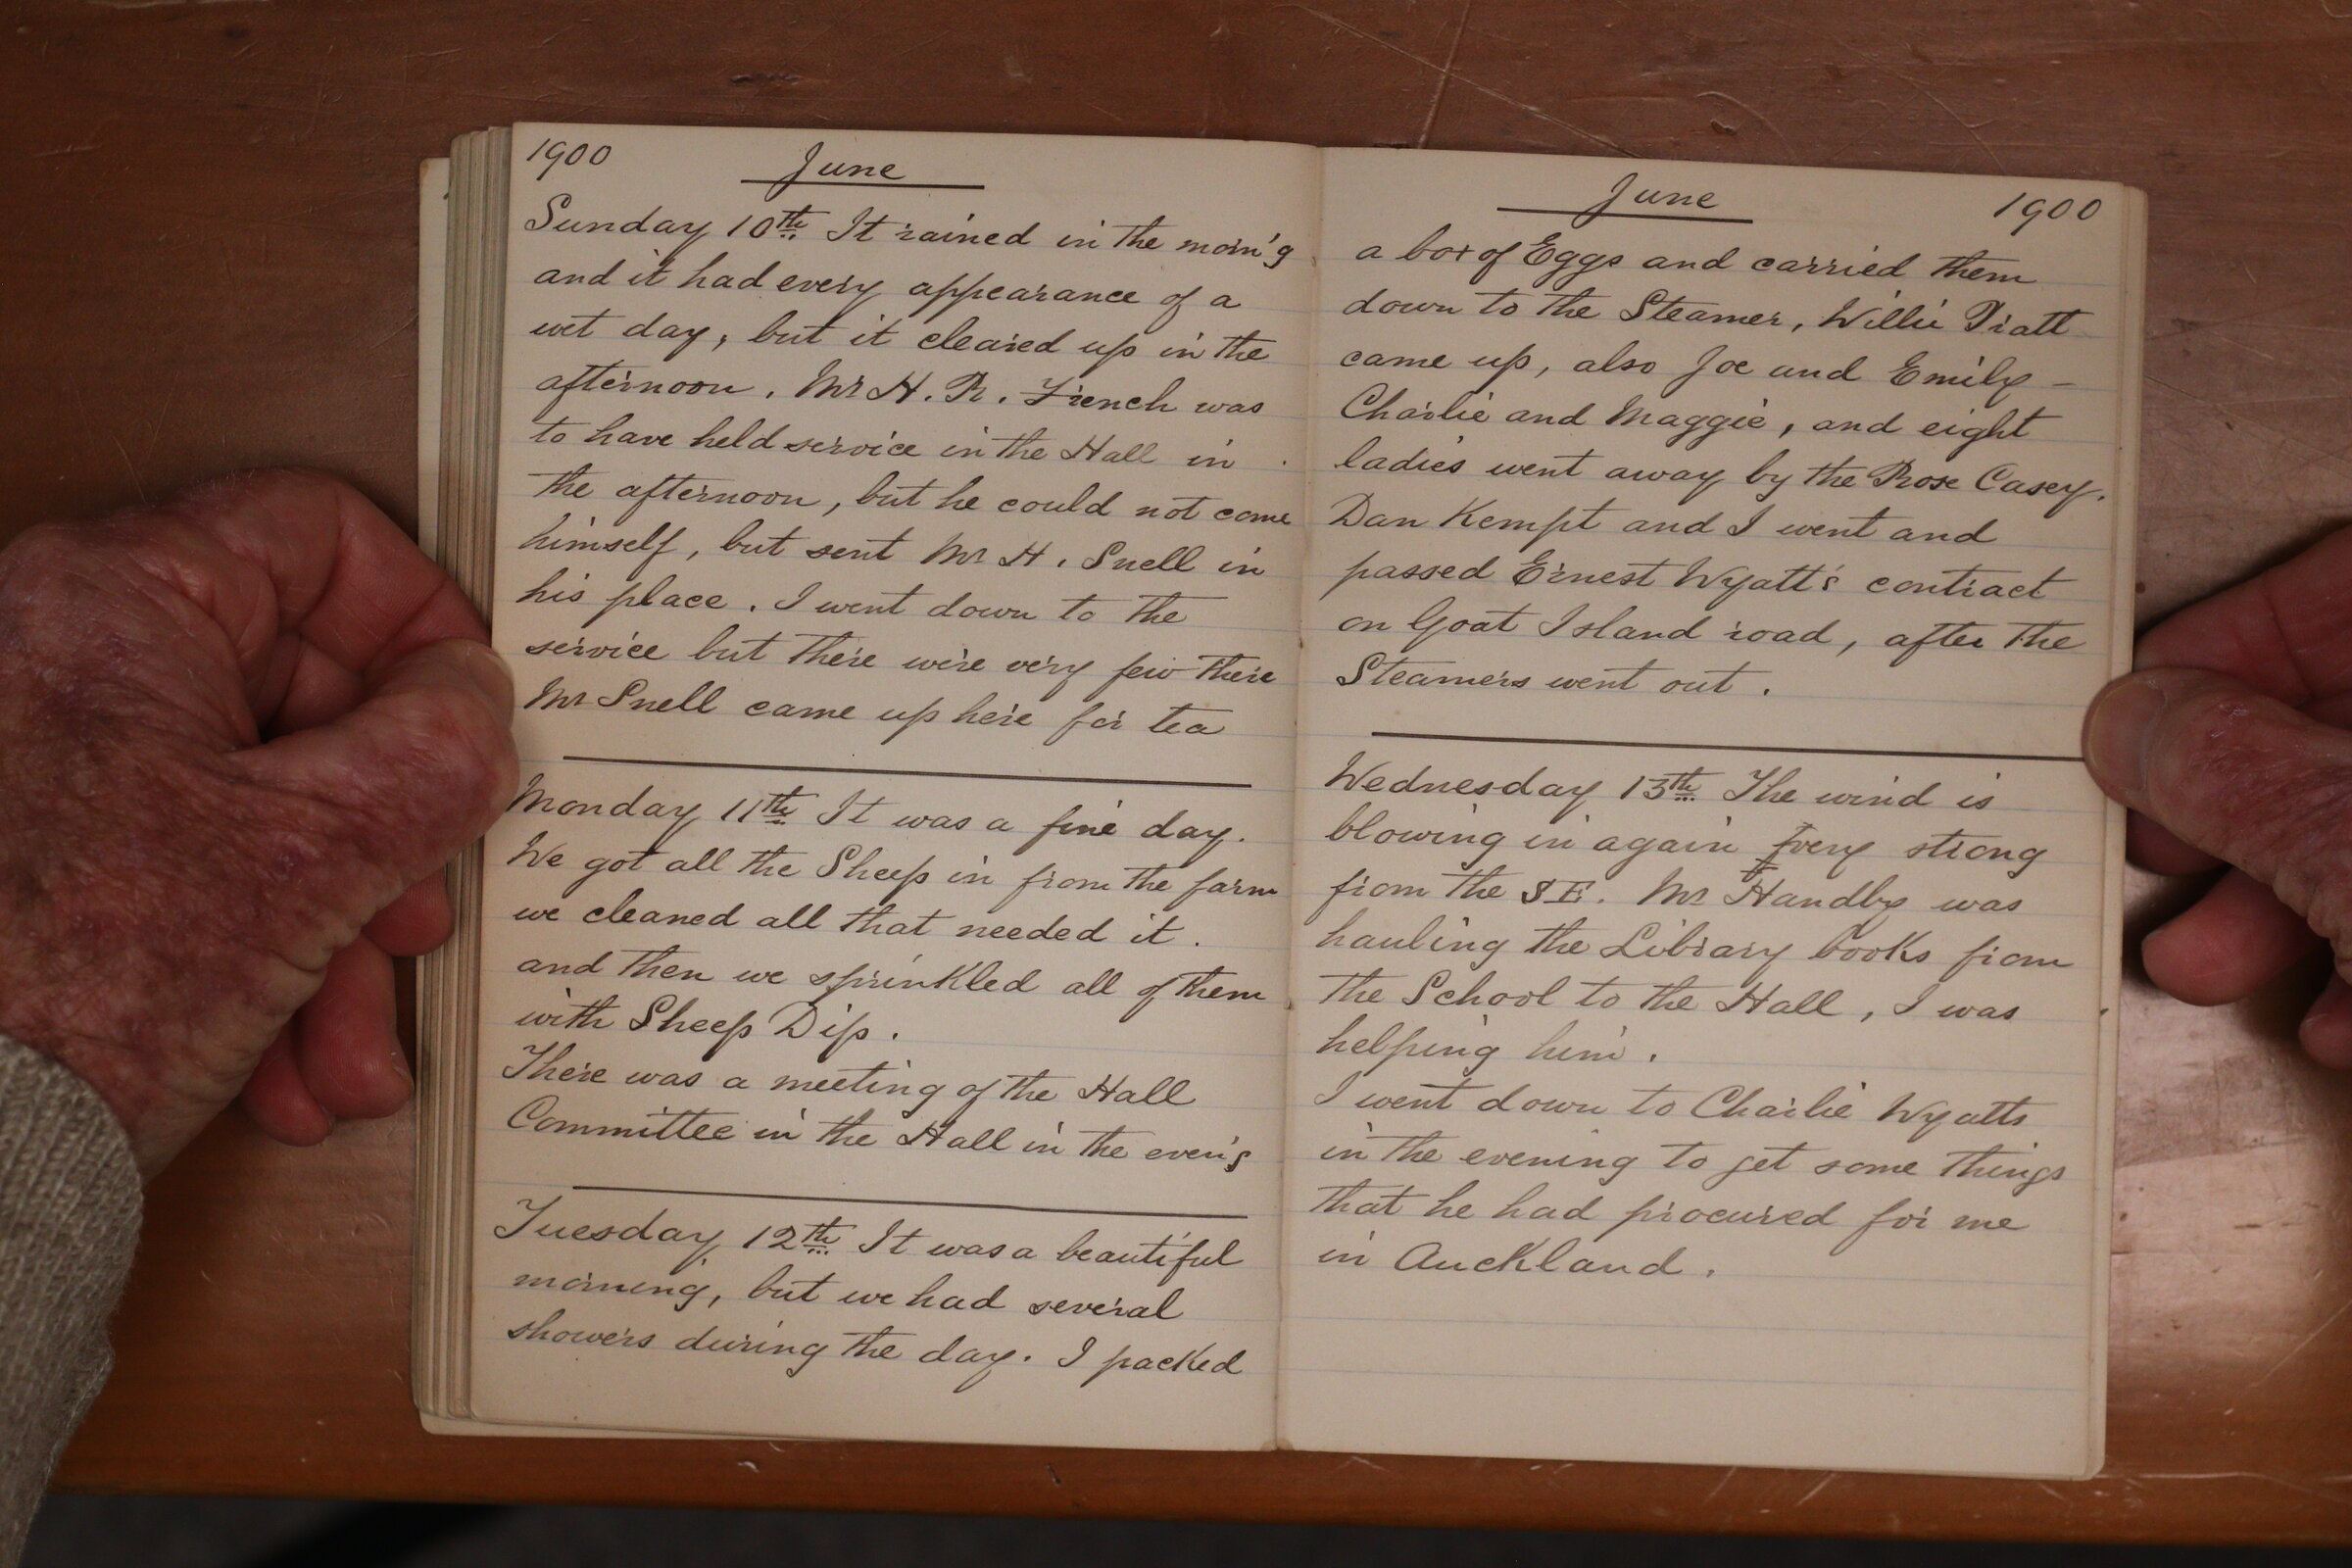 1900 June
Sunday 10th It rained in the morn'g
and it had every appearance of a
wet day, but it cleared up in the
afternoon. Mr H. R. French was
to have held service in the Hall in
the afternoon, but he could not come
himself, but sent Mr H. Snell in
his place. I went down to the
service but there were very few there
Mr Snell came up here for tea
Monday 11th It was a fine day.
We got all the Sheep in from the farm
we cleaned all that needed it.
and then we sprinkled all of them
with Sheep Dip.
There was a meeting of the Hall
Committee in the Hall in the even'g
Tuesday 12th It was a beautiful
morning, but we had several
showers during the day. I packed
June 1900
a box of Eggs and carried them
down to the Steamer, Willie Pratt
came up, also Joe and Emily –
Charlie and Maggie, and eight
ladies went away by the Rose Casey.
Dan Kempt and I went and
passed Ernest Wyatt's contract
on Goat Island road, after the
Steamers went out.
Wednesday 13th The wind is
blowing in again very strong
from the S E. Mr Handby was
hauling the Library books from
the School to the Hall, I was
helping him.
I went down to Charlie Wyatts
in the evening to get some things
that he had procured for me
in Auckland.